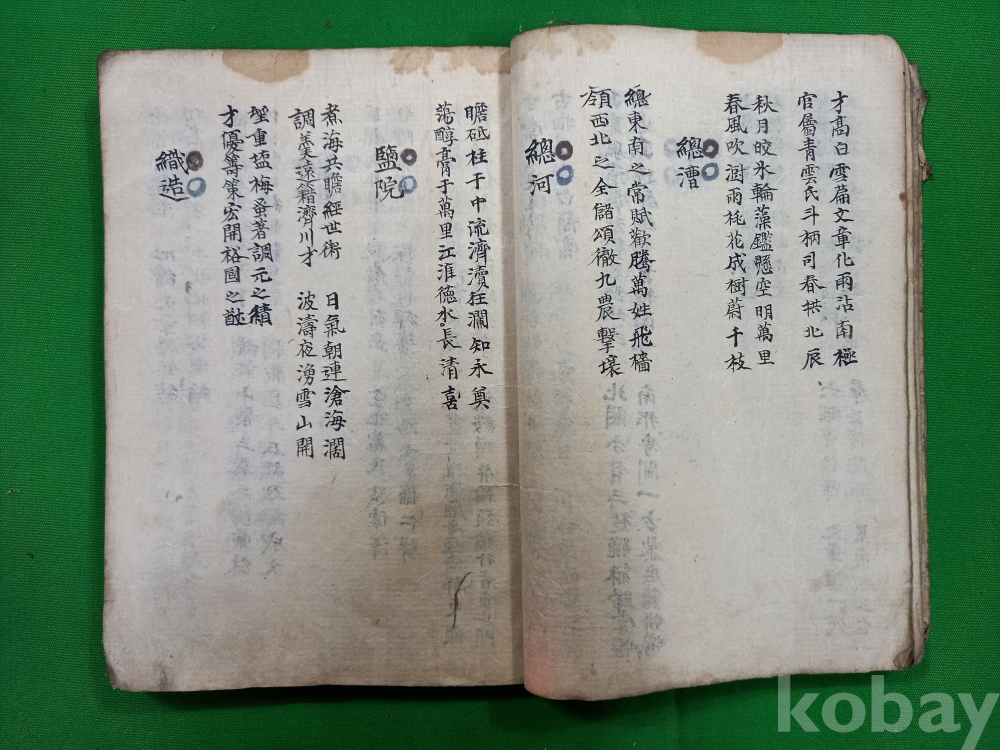 才高白雲篇文章化雨沾南極
官屬青雲氏斗柄司春拱北辰
秋月皎氷輪藻鑑懸空明萬里
春風吹澍雨桃花成樹蔚千枝
總漕
總東南之常賦歡騰萬姓飛檣
領西北之全儲頌徹九農擊壤
總河
瞻砥柱于中流濟瀆狂瀾知永奠
蕩醇膏于萬里江淮德水長清喜
鹽院
煮海共瞻經世術 日氣朝連滄海濶
調羹遠籍濟川才 波濤夜湧雪山開
望重塩梅蚤著調元之績
才優籌策宏開裕國之猷
織造
kobay